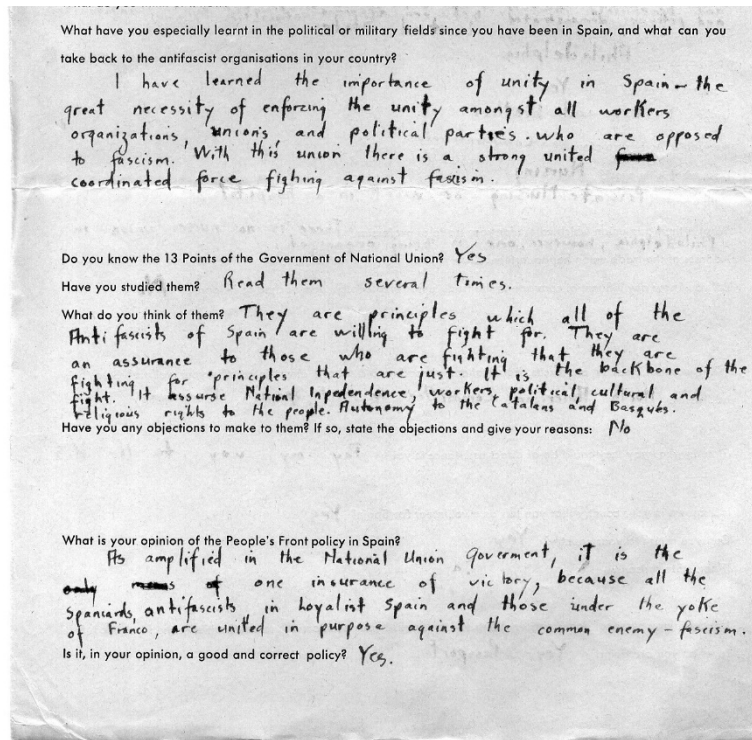 What have you especially learnt in the political or military fields since you have been in Spain, and what can you
take back to the antifascist organisations in your country?
I have learned the importance of unity in Spain – the
great necessity of enforcing the unity amongst all workers
organizations, unions and political parties. who are opposed
to fascism. With this union there is a strong united
coordinated force fighing against fasism.
Do you know the 13 Points of the Government of National Union? Yes
Have you studied them? Read them several times.
What do you think of them? They are principles which all of the
Anti fascists of Spain are willing to fight for. They are
an assurance to those who are fighting that they are
fighting for principles that are just. It is the backbone of the
fight. It assurse National Inpedendence, workers, political, cultural, and
religious rights to the people. Autonomy to the Catalans and Basques.
Have you any objections to make to them? If so, state the objections and give your reasons: No
What is your opinion of the People's Front policy in Spain?
As amplified in the National Union Goverment, it is the
only means of one insurance of victory, because all the
Spaniards, antifascists, in Loyalist Spain and those under the yoke
of Franco, are united in purpose against the common enemy – fascism.
Is it, in your opinion, a good and correct policy? Yes.